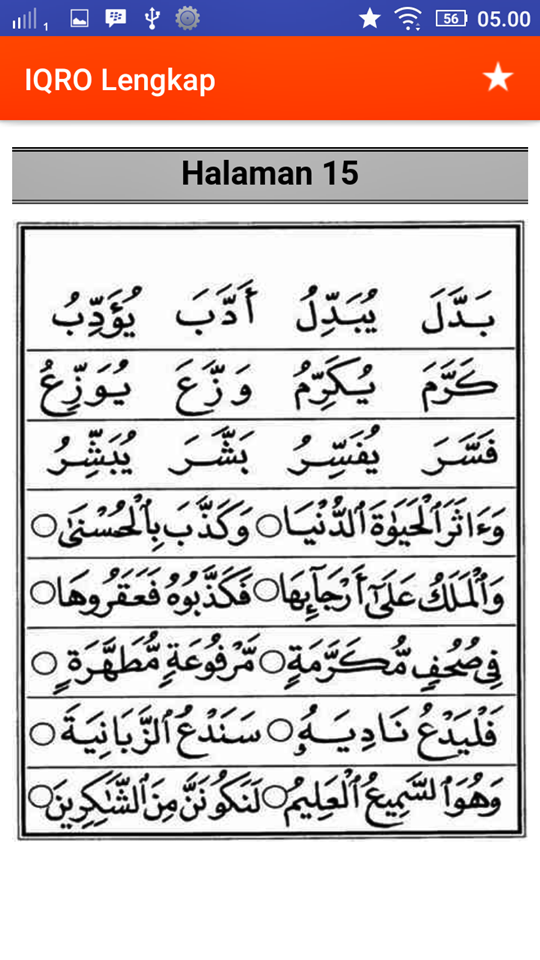 1 56 05.00
IQRO Lengkap
Halaman 15
بَدَّلَ يُبَدِّلُ أَدَّبَ يُؤَدِّبُ
كَرَّمَ يُكَرِّمُ وَزَّعَ يُوَزِّعُ
فَسَّرَ يُفَسِّرُ بَشَّرَ يُبَشِّرُ
وَءَاثَرَ ٱلْحَيَوٰةَ ٱلدُّنْيَا ○ وَكَذَّبَ بِٱلْحُسْنَىٰ ○
وَٱلْمَلَكُ عَلَىٰٓ أَرْجَآئِهَا ○ فَكَذَّبُوهُ فَعَقَرُوهَا ○
فِى صُحُفٍ مُّكَرَّمَةٍ ○ مَّرْفُوعَةٍ مُّطَهَّرَةٍ ○
فَلْيَدْعُ نَادِيَهُۥ ○ سَنَدْعُ ٱلزَّبَانِيَةَ ○
وَهُوَ ٱلسَّمِيعُ ٱلْعَلِيمُ ○ لَنَكُونَنَّ مِنَ ٱلشَّٰكِرِينَ ○